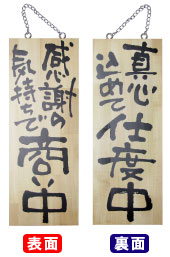 感謝の
気持で
商い中
真心
込めて
仕度中
表面
裏面